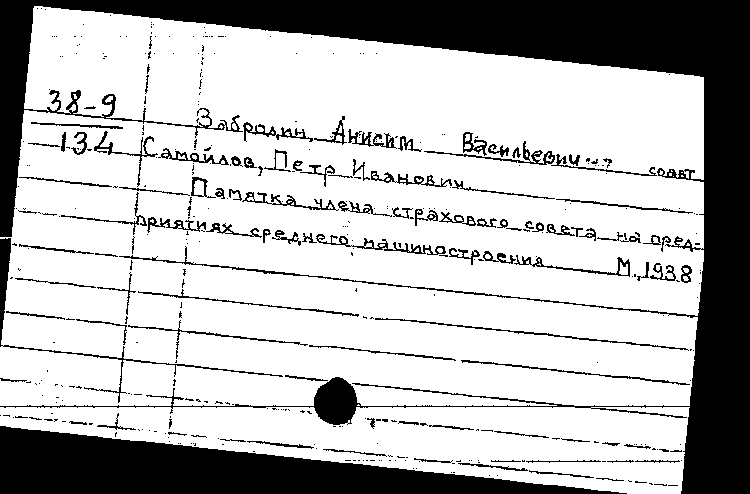 38-9
134
Забродин, Анисим Васильевич соавт.
Самойлов, Петр Иванович.
Памятка члена страхового совета на пред-
приятиях среднего машиностроения М., 1938